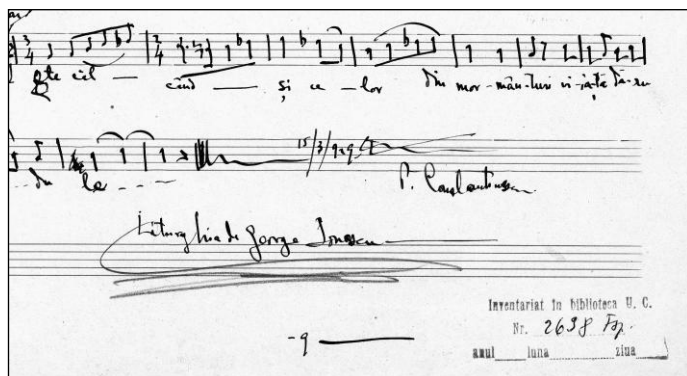 cîl — cînd — și ce - lor din mor - mân - turi vi - ață
le - - -
15/3/
P. Constantinescu
Liturghia de George Ionescu
-9
Inventariat în biblioteca U. C.
Nr. 2698
anul luna ziua